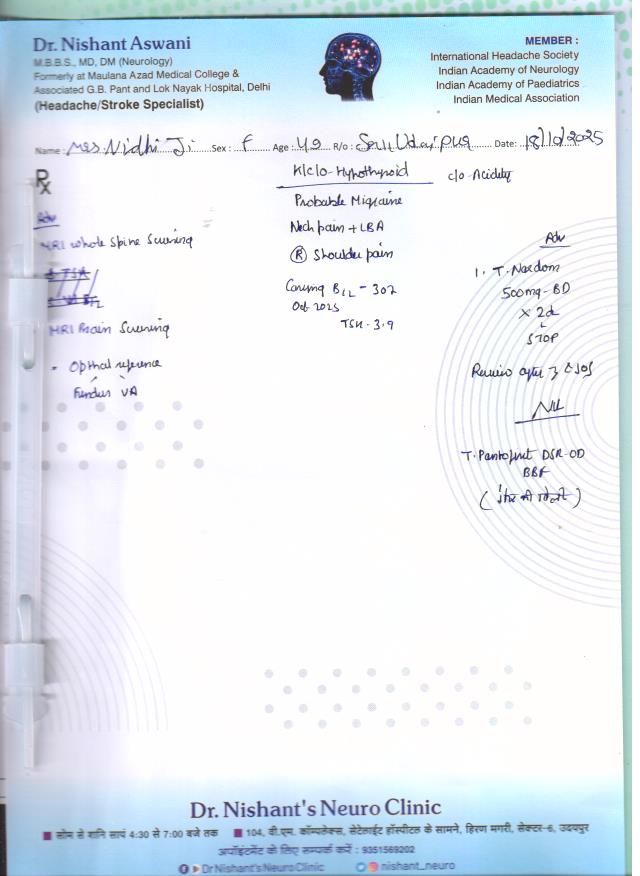 Dr. Nishant Aswani
M.B.B.S., MD, DM (Neurology)
Formerly at Maulana Azad Medical College &
Associated G.B. Pant and Lok Nayak Hospital, Delhi
(Headache/Stroke Specialist)
MEMBER :
International Headache Society
Indian Academy of Neurology
Indian Academy of Paediatrics
Indian Medical Association
Name : Mrs. Nidhi Ji Sex : F Age : 49 R/o : Udaipur Date: 18/10/2025
Rx
Adv
MRI whole Spine Screening
MRI Brain Screening
- Opthal reference
Fundus VA
K/c/o - Hypothyroid
Probable Migraine
Neck pain + LBA
(R) Shoulder pain
B12 - 307
Oct 2025
TSH - 3.9
c/o - Acidity
Adv
1. T. Naxdom
500mg - BD
x 2d
↓
STOP
Review after
T. Pantop DSR - OD
BBF
Dr. Nishant's Neuro Clinic
सोम से शनि सायं 4:30 से 7:00 बजे तक
104, वी.एम. कॉम्पलेक्स, सेटेलाईट हॉस्पीटल के सामने, हिरण मगरी, सेक्टर-6, उदयपुर
अपॉइंटमेंट के लिए सम्पर्क करें : 9351569202
Dr Nishant's Neuro Clinic
nishant_neuro